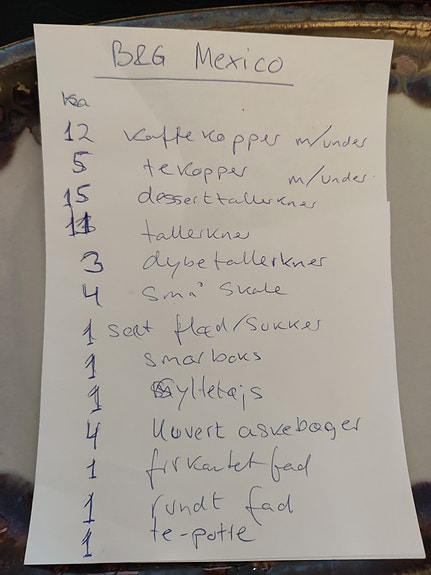 B&G Mexico
12 kaffekopper m/under
5 tekopper m/under.
15 desserttallerkner
11 tallerkner
3 dybetallerkner
4 små skåle
1 sæt flød/sukker
1 smørboks
1 Syltetøjs
4 kuvert askebæger
1 firkantet fad
1 rundt fad
1 te-potte